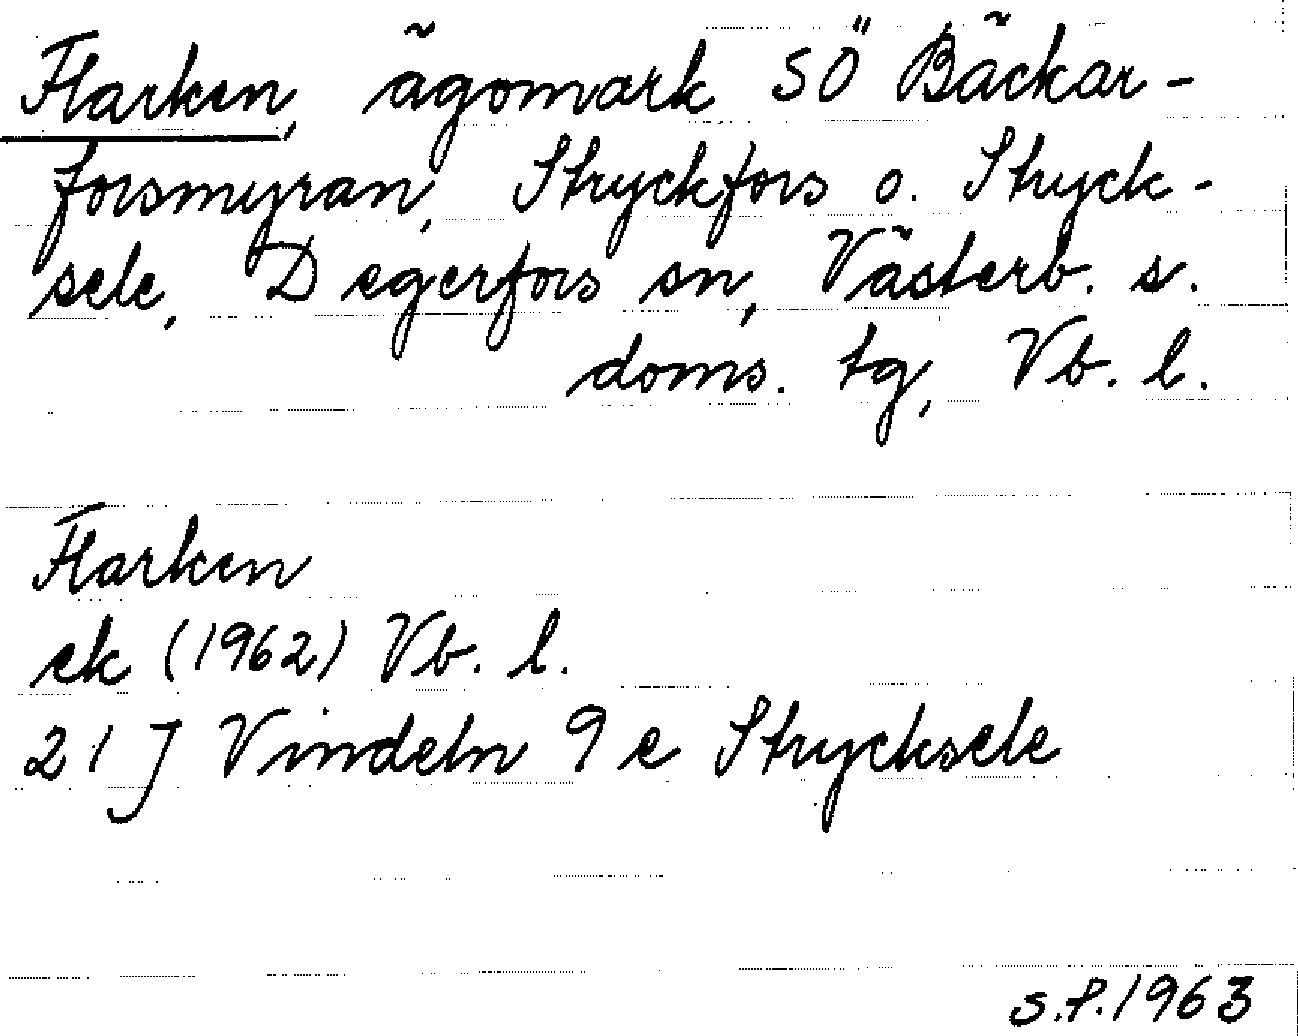 Flarken, ägomark SÖ Bäckar-
forsmyran, Stryckfors o. Stryck-
sele, Degerfors sn, Västerb. s.
doms. tg, Vb. l.
Flarken
ek (1962) Vb. l.
21 J Vindeln 9 e Strycksele
S.P. 1963